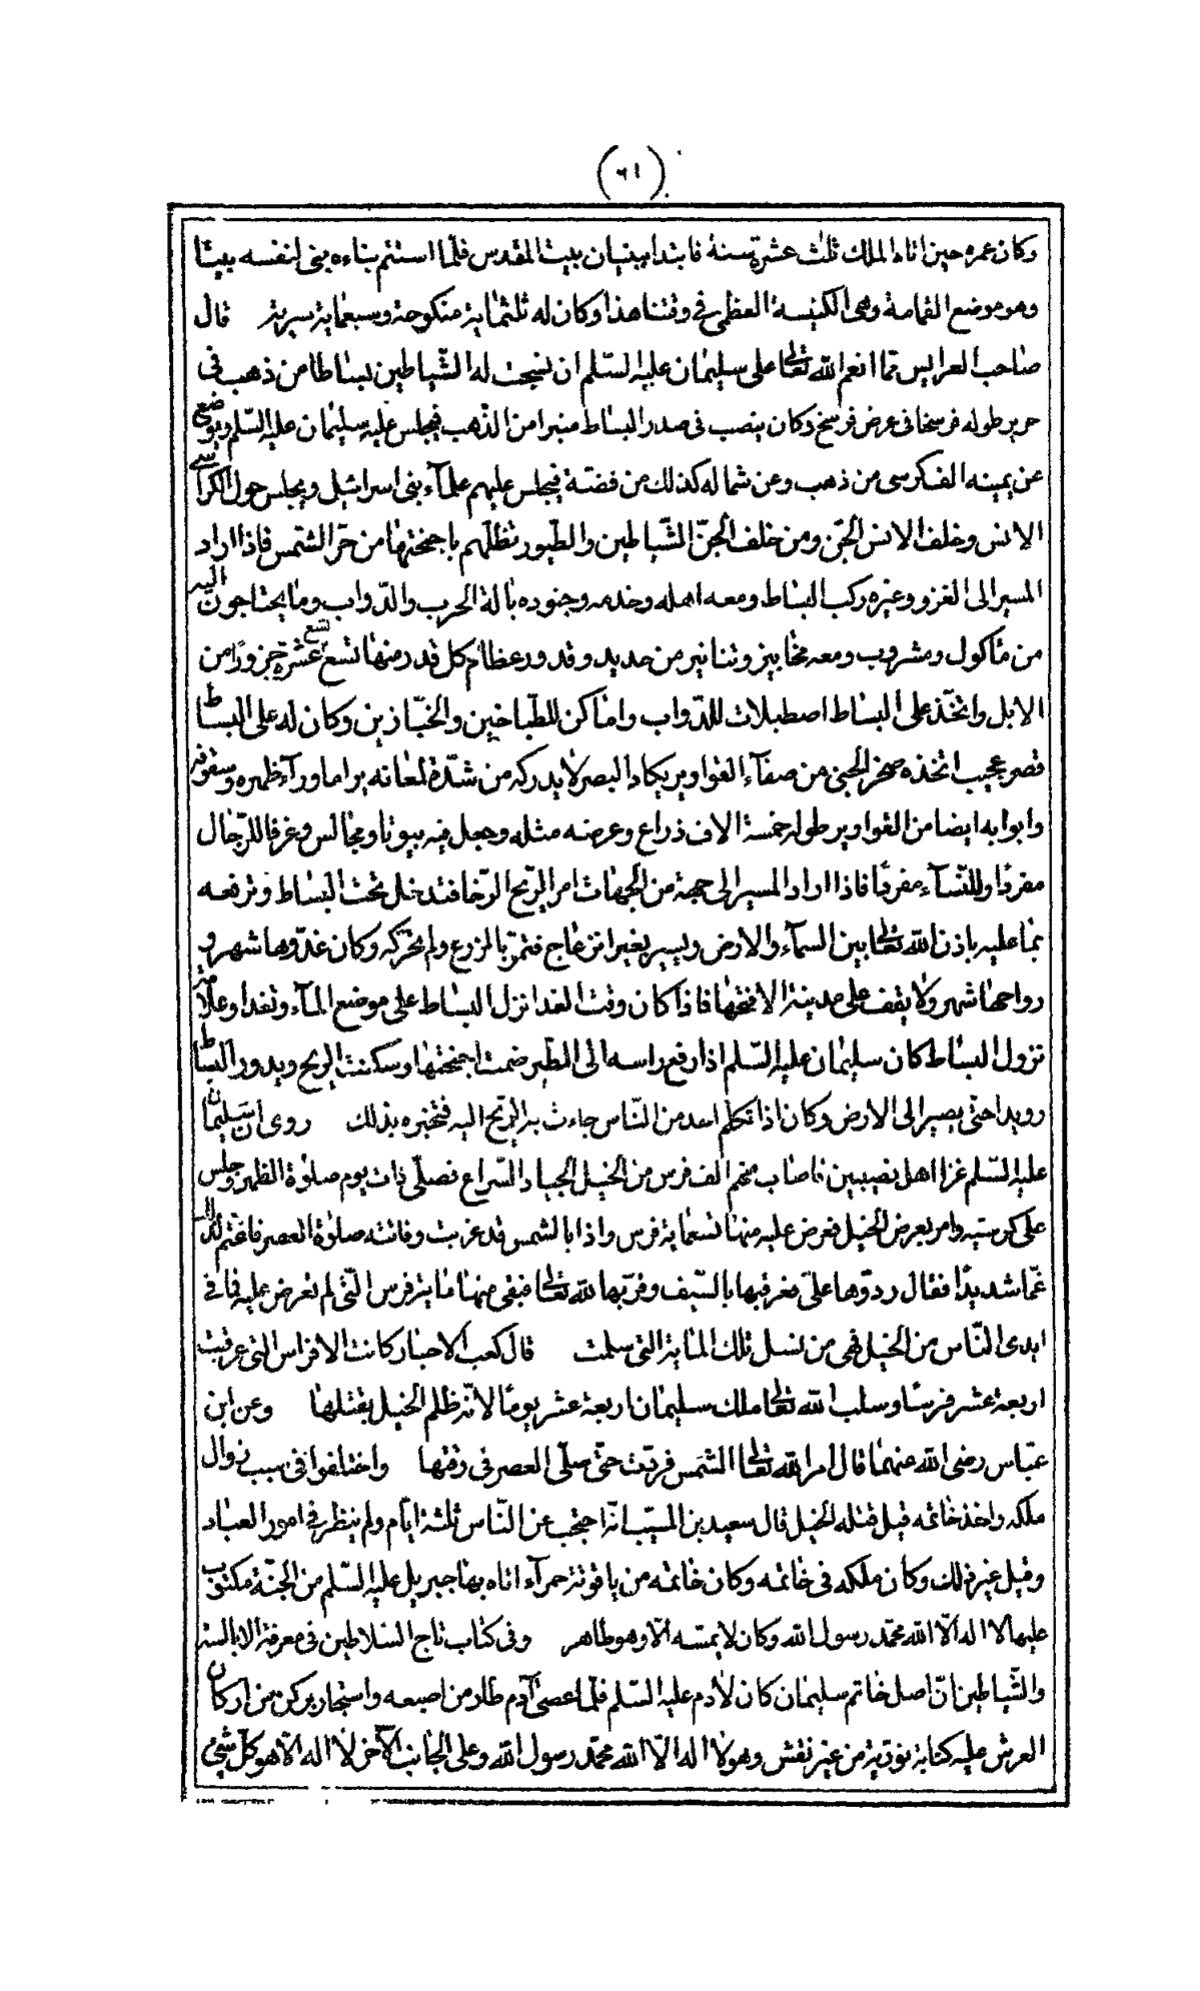 (٦١)
وكان عمره حين اتاه الملك ثلث عشرة سنة فابتدا ببنيان بيت المقدس فلما استتم بناءه بنى لنفسه بيتا
وهو موضع القمامة وهى الكنيسة العظمى فى وقتنا هذا وكان له ثلثماية منكوحة وسبعماية سرية قال
صاحب العرايس مما انعم الله تعالى على سليمان عليه السلم ان نسجت له الشياطين بساطا من ذهب فى
حرير طوله فرسخا فى عرض فرسخ وكان ينصب فى صدر البساط منبرا من الذهب فيجلس عليه سليمان عليه السلم ويوضع
عن يمينه الف كرسى من ذهب وعن شماله كذلك من فضة فيجلس عليهم علمآء بنى اسرائيل ويجلس حول الكراسى
الانس وخلف الانس الجن ومن خلف الجن الشياطين والطيور تظلهم باجنحتها من حر الشمس فاذا اراد
المسير الى الغزو وغيره ركب البساط ومعه اهله وخدمه وجنوده بالة الحرب والدواب وما يحتاجون اليه
من ماكول ومشروب ومعه مخابيز وتنانير من حديد وقدور عظام كل قدر منها تسع تسع عشرة جزورا من
الابل واتخذ على البساط اصطبلات للدواب واماكن للطباخين والخبازين وكان له على البساط
قصر عجيب اتخذه صخر الجنى من صفآء القوارير يكاد البصر لا يدركه من شدة لمعانه يرا ما ورآء ظهره وسقوفه
وابوابه ايضا من القوارير طوله خمسة الاف ذراع وعرضه مثله وجعل فيه بيوتا ومجالس وغرفا للرجال
مفردا وللنسآء مفردا فاذا اراد المسير الى جهة من الجهات امر الريح الرخا فتدخل تحت البساط وترفعه
بما عليه باذن الله تعالى بين السمآء والارض ويسير بغير انزعاج فتمر بالزرع ولم تحركه وكان غدوها شهر و
رواحها شهر ولا يقف على مدينة الا فتحها فاذا كان وقت الغدا نزل البساط على موضع المآء وتغدا وعلامة
نزول البساط كان سليمان عليه السلم اذا رفع راسه الى الطير ضمت اجنحتها وسكنت الريح ويدور البساط
رويدا حتى يصير الى الارض وكان اذا تكلم احد من الناس جاءت به الريح اليه فتخبره بذلك روى ان سليمان
عليه السلم غزا اهل نصيبين فاصاب منهم الف فرس من الخيل الجياد السراع فصلى ذات يوم صلوة الظهر وجلس
على كرسيه وامر بعرض الخيل فعرض عليه منها تسعماية فرس واذا بالشمس قد غربت وفاتته صلوة العصر فاغتم لذلك
غما شديدا فقال ردوها على فعرقبها بالسيف وقربها لله تعالى فبقى منها ماية فرس التى لم تعرض عليه فما فى
ايدى الناس من الخيل فهى من نسل تلك الماية التى سلمت قال كعب الاحبار كانت الافراس التى عرقبت
اربعة عشر فرسا وسلب الله تعالى ملك سليمان اربعة عشر يوما لانه ظلم الخيل بقتلها وعن ابن
عباس رضى الله عنهما قال امر الله تعالى الشمس فردت حتى صلى العصر فى وقتها واختلفوا فى سبب زوال
ملكه واخذ خاتمه قيل قتله الخيل قال سعيد بن المسيب انه احتجب عن الناس ثلثة ايام ولم ينظر فى امور العباد
وقيل غير ذلك وكان ملكه فى خاتمه وكان خاتمه من ياقوتة حمرآء اتاه بها جبريل عليه السلم من الجنة مكتوب
عليها لا اله الا الله محمد رسول الله وكان لا يمسه الا وهو طاهر وفى كتاب تاج السلاطين فى معرفة الابالسة
والشياطين ان اصل خاتم سليمان كان لادم عليه السلم فلما عصى آدم طار من اصبعه واستجار بركن من اركان
العرش عليه كتابة نورية من غير نقش وهو لا اله الا الله محمد رسول الله وعلى الجانب الآخر لا اله الا هو كل شئ